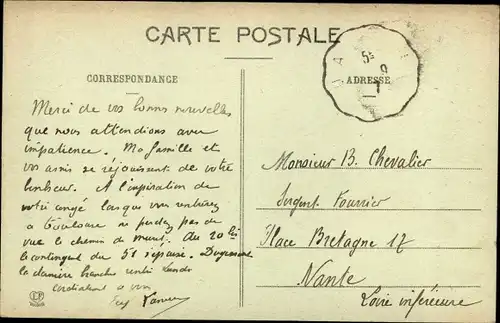 CARTE POSTALE
CORRESPONDANCE
ADRESSE
Merci de vos bonnes nouvelles
que nous attendions avec
impatience. Ma famille et
vos amis se réjouissent de votre
bonheur. A l'expiration de
votre congé lorsque vous
à Toulouse ne perdez pas de
vue le chemin de Muret. Du 20
le contingent du
la dernière
cordialement à vous
Monsieur B. Chevalier
Sergent Fourrier
Place Bretagne 17
Nante
Loire inférieure